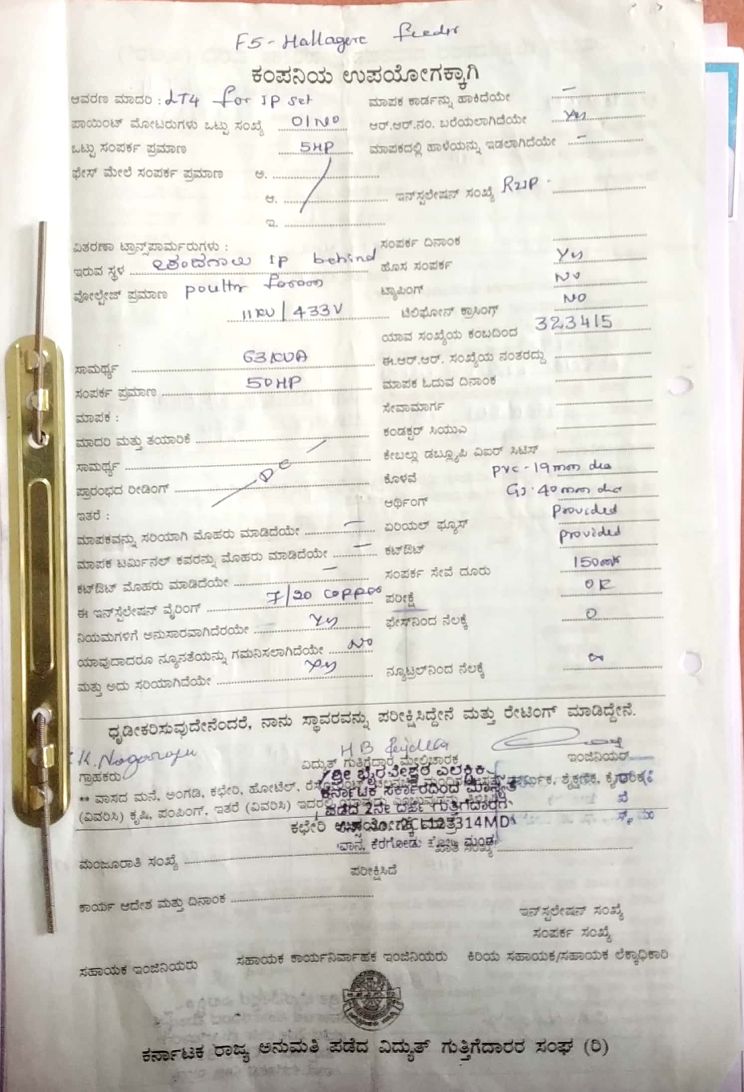 F5- Hallagere feeder
ಕಂಪನಿಯ ಉಪಯೋಗಕ್ಕಾಗಿ
ಆವರಣ ಮಾದರಿ : LT4 for IP set ಮಾಪಕ ಕಾರ್ಡನ್ನು ಹಾಕಿದೆಯೇ –
ಪಾಯಿಂಟ್ ಮೋಟರುಗಳು ಒಟ್ಟು ಸಂಖ್ಯೆ 01No ಆರ್.ಆರ್.ನಂ. ಬರೆಯಲಾಗಿದೆಯೇ Yes
ಒಟ್ಟು ಸಂಪರ್ಕ ಪ್ರಮಾಣ 5HP ಮಾಪಕದಲ್ಲಿ ಹಾಳೆಯನ್ನು ಇಡಲಾಗಿದೆಯೇ –
ಫೇಸ್ ಮೇಲೆ ಸಂಪರ್ಕ ಪ್ರಮಾಣ ಅ.
ಆ. ಇನ್‌ಸ್ಟಲೇಷನ್ ಸಂಖ್ಯೆ
ಇ.
ವಿತರಣಾ ಟ್ರಾನ್ಸ್‌ಪಾರ್ಮರುಗಳು : ಸಂಪರ್ಕ ದಿನಾಂಕ
ಇರುವ ಸ್ಥಳ IP behind ಹೊಸ ಸಂಪರ್ಕ Yes
ವೋಲ್ಟೇಜ್ ಪ್ರಮಾಣ poultry ಟ್ಯಾಪಿಂಗ್ No
11KV / 433V ಟೆಲಿಫೋನ್ ಕ್ರಾಸಿಂಗ್ NO
ಯಾವ ಸಂಖ್ಯೆಯ ಕಂಬದಿಂದ 323415
ಸಾಮರ್ಥ್ಯ 63KVA ಈ.ಆರ್.ಆರ್. ಸಂಖ್ಯೆಯ ನಂತರದ್ದು
ಸಂಪರ್ಕ ಪ್ರಮಾಣ 50HP ಮಾಪಕ ಓದುವ ದಿನಾಂಕ
ಮಾಪಕ : ಸೇವಾಮಾರ್ಗ
ಮಾದರಿ ಮತ್ತು ತಯಾರಿಕೆ ಕಂಡಕ್ಟರ್ ಸಿಯುಎ
ಸಾಮರ್ಥ್ಯ ಕೇಬಲ್ಲು ಡಬ್ಲ್ಯೂಪಿ ವಿಐರ್ ಸಿಟಿಸ್
ಪ್ರಾರಂಭದ ರೀಡಿಂಗ್ ಕೊಳವೆ PVC - 19mm dia
ಇತರೆ : ಆರ್ಥಿಂಗ್ GI. 40mm dia
ಮಾಪಕವನ್ನು ಸರಿಯಾಗಿ ಮೊಹರು ಮಾಡಿದೆಯೇ – ಏರಿಯಲ್ ಫ್ಯೂಸ್ Provided
ಮಾಪಕ ಟರ್ಮಿನಲ್ ಕವರನ್ನು ಮೊಹರು ಮಾಡಿದೆಯೇ – ಕಟ್‌ಔಟ್ Provided
ಕಟ್‌ಔಟ್ ಮೊಹರು ಮಾಡಿದೆಯೇ – ಸಂಪರ್ಕ ಸೇವೆ ದೂರು
ಈ ಇನ್‌ಸ್ಟೆಲೇಷನ್ ವೈರಿಂಗ್ 7/20 copper ಪರೀಕ್ಷೆ OK
ನಿಯಮಗಳಿಗೆ ಅನುಸಾರವಾಗಿದೆರಯೇ Yes ಫೇಸ್‌ನಿಂದ ನೆಲಕ್ಕೆ 0
ಯಾವುದಾದರೂ ನ್ಯೂನತೆಯನ್ನು ಗಮನಿಸಲಾಗಿದೆಯೇ No
ಮತ್ತು ಅದು ಸರಿಯಾಗಿದೆಯೇ Yes ನ್ಯೂಟ್ರಲ್‌ನಿಂದ ನೆಲಕ್ಕೆ
ಧೃಡೀಕರಿಸುವುದೇನೆಂದರೆ, ನಾನು ಸ್ಥಾವರವನ್ನು ಪರೀಕ್ಷಿಸಿದ್ದೇನೆ ಮತ್ತು ರೇಟಿಂಗ್ ಮಾಡಿದ್ದೇನೆ.
ಗ್ರಾಹಕರು ವಿದ್ಯುತ್ ಗುತ್ತಿಗೆದಾರ ಮೇಲ್ವಿಚಾರಕ ಇಂಜಿನಿಯರ್
** ವಾಸದ ಮನೆ, ಅಂಗಡಿ, ಕಛೇರಿ, ಹೋಟೆಲ್, ಶೈಕ್ಷಣಿಕ, ಕೈಗಾರಿಕೆ
ಶ್ರೀ ಭೈರವೇಶ್ವರ ಎಲೆಕ್ಟ್ರಿಕ
ಕರ್ನಾಟಕ ಸರ್ಕಾರದಿಂದ ಮಾನ್ಯತೆ
(ವಿವರಿಸಿ) ಕೃಷಿ, ಪಂಪಿಂಗ್, ಇತರೆ (ವಿವರಿಸಿ)
ಪಡೆದ 2ನೇ ದರ್ಜೆ ಗುತ್ತಿಗೆದಾರರು
ಕಛೇರಿ ಉಪಯೋಗಕ್ಕೆ ಮಾತ್ರ
ಮಂಜೂರಾತಿ ಸಂಖ್ಯೆ
ಪರೀಕ್ಷಿಸಿದೆ
ಕಾರ್ಯ ಆದೇಶ ಮತ್ತು ದಿನಾಂಕ
ಇನ್‌ಸ್ಟಲೇಷನ್ ಸಂಖ್ಯೆ
ಸಂಪರ್ಕ ಸಂಖ್ಯೆ
ಸಹಾಯಕ ಇಂಜಿನಿಯರು ಸಹಾಯಕ ಕಾರ್ಯನಿರ್ವಾಹಕ ಇಂಜಿನಿಯರು ಕಿರಿಯ ಸಹಾಯಕ/ಸಹಾಯಕ ಲೆಕ್ಕಾಧಿಕಾರಿ
ಕರ್ನಾಟಕ ರಾಜ್ಯ ಅನುಮತಿ ಪಡೆದ ವಿದ್ಯುತ್ ಗುತ್ತಿಗೆದಾರರ ಸಂಘ (ರಿ)